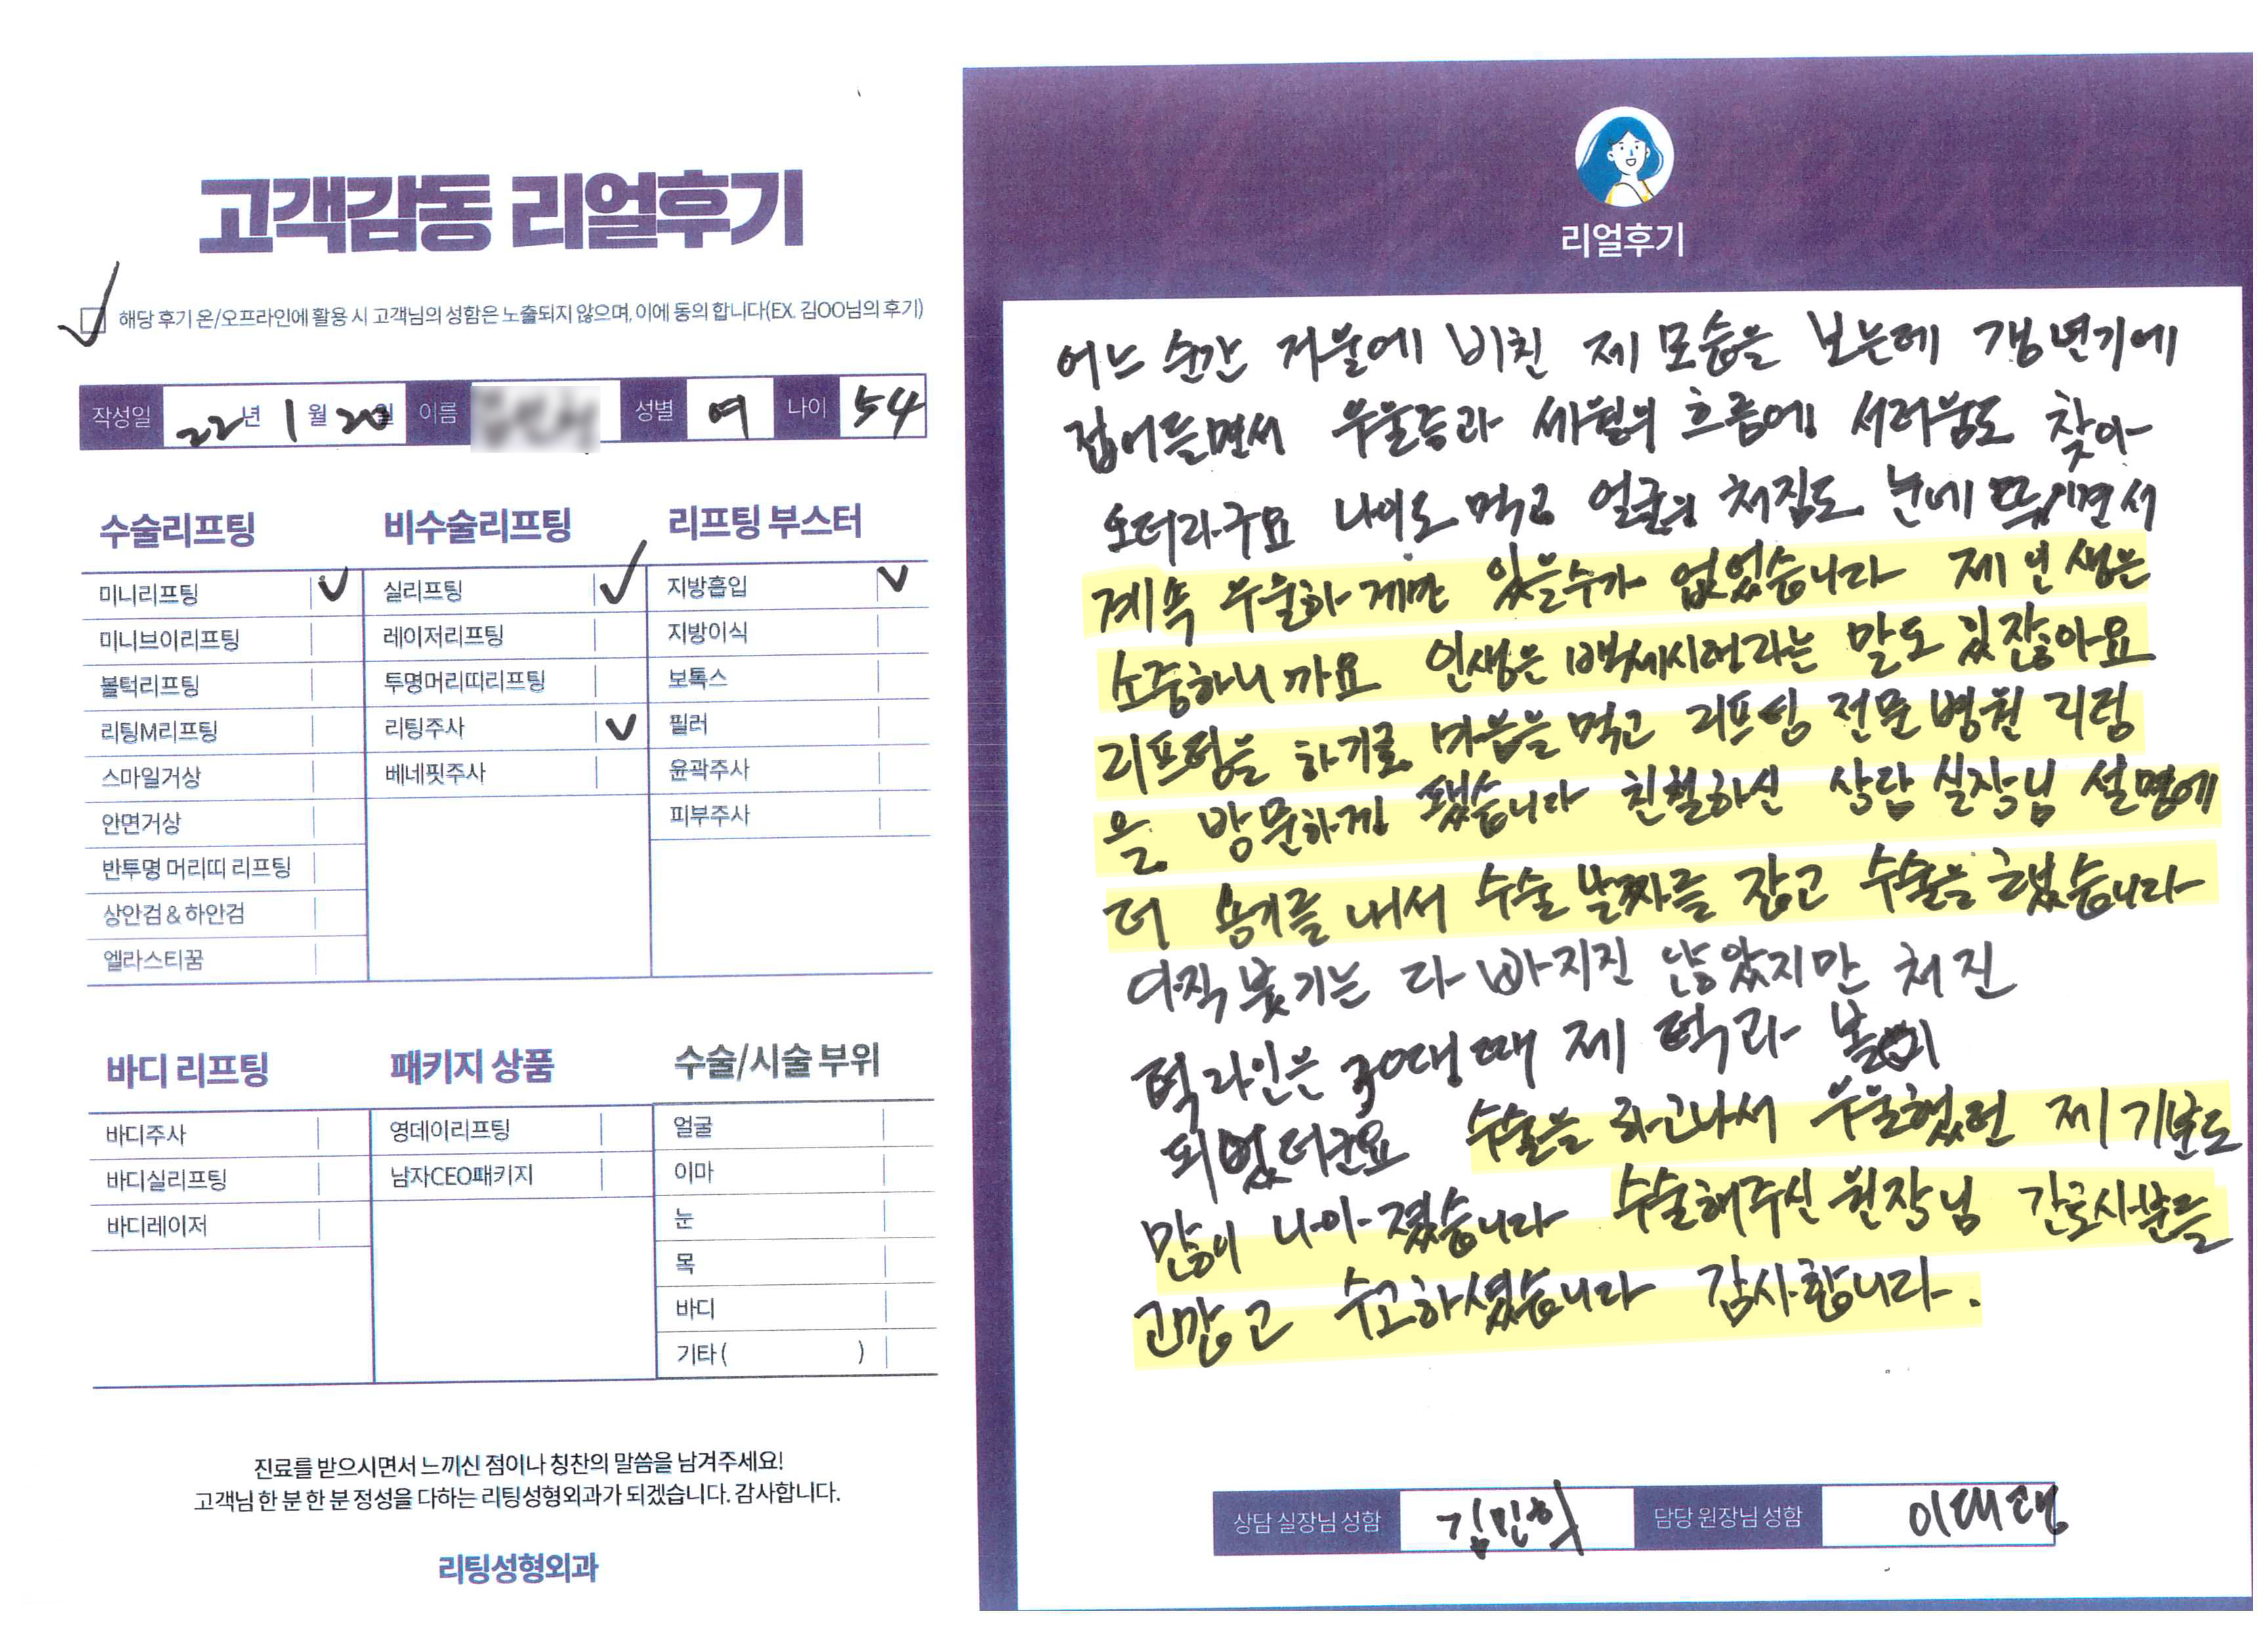 고객감동 리얼후기
해당 후기 온/오프라인에 활용 시 고객님의 성함은 노출되지 않으며, 이에 동의 합니다(EX. 김OO님의 후기)
작성일 22년 1월 20일 이름 성별 여 나이 54
수술리프팅
미니리프팅 V
미니브이리프팅
볼턱리프팅
리팅M리프팅
스마일거상
안면거상
반투명 머리띠 리프팅
상안검 & 하안검
엘라스티꿈
비수술리프팅
실리프팅 ✓
레이저리프팅
투명머리띠리프팅
리팅주사 V
베네핏주사
리프팅 부스터
지방흡입 V
지방이식
보톡스
필러
윤곽주사
피부주사
바디 리프팅
바디주사
바디실리프팅
바디레이저
패키지 상품
영데이리프팅
남자CEO패키지
수술/시술 부위
얼굴
이마
눈
목
바디
기타 ( )
진료를 받으시면서 느끼신 점이나 칭찬의 말씀을 남겨주세요!
고객님 한 분 한 분 정성을 다하는 리팅성형외과가 되겠습니다. 감사합니다.
리팅성형외과
리얼후기
어느 순간 거울에 비친 제 모습을 보는데 갱년기에
접어들면서 우울증과 세월의 흐름에 서러움도 찾아
오더라구요 나이도 먹고 얼굴의 처짐도 눈에 띄면서
계속 우울하게만 있을수가 없었습니다 제 인생은
소중하니까요 인생은 백세시대라는 말도 있잖아요
리프팅을 하기로 마음을 먹고 리프팅 전문병원 리팅
을 방문하게 됐습니다 친절하신 상담 실장님 설명에
더 용기를 내서 수술 날짜를 잡고 수술을 했습니다
아직 붓기는 다 빠지진 않았지만 처진
턱라인은 30대때 제 턱과 볼이
되었더군요 수술을 하고나서 우울했던 제 기분도
많이 나아졌습니다 수술해주신 원장님 간호사분들
고맙고 수고하셨습니다 감사합니다.
상담 실장님 성함 김민희 담당 원장님 성함